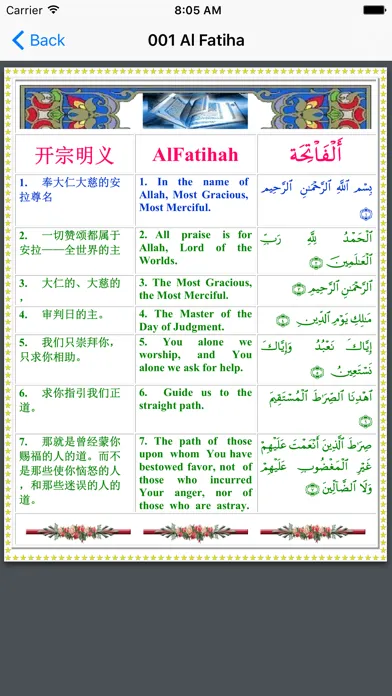 Carrier 8:05 AM
Back 001 Al Fatiha
开宗明义 AlFatihah أَلْفَاْتِحَة
1. 奉大仁大慈的安
拉尊名
1. In the name of
Allah, Most Gracious,
Most Merciful.
بِسْمِ ٱللَّهِ ٱلرَّحْمَٰنِ ٱلرَّحِيمِ
۝١
2. 一切赞颂都属于
安拉——全世界的主
2. All praise is for
Allah, Lord of the
Worlds.
ٱلْحَمْدُ لِلَّهِ رَبِّ
ٱلْعَٰلَمِينَ ۝٢
3. 大仁的、大慈的
,
3. The Most Gracious,
the Most Merciful.
ٱلرَّحْمَٰنِ ٱلرَّحِيمِ ۝٣
4. 审判日的主。
4. The Master of the
Day of Judgment.
مَٰلِكِ يَوْمِ ٱلدِّينِ ۝٤
5. 我们只崇拜你,
只求你相助。
5. You alone we
worship, and You
alone we ask for help.
إِيَّاكَ نَعْبُدُ وَإِيَّاكَ
نَسْتَعِينُ ۝٥
6. 求你指引我们正
道。
6. Guide us to the
straight path.
ٱهْدِنَا ٱلصِّرَٰطَ ٱلْمُسْتَقِيمَ
۝٦
7. 那就是曾经蒙你
赐福的人的道。而不
是那些使你恼怒的人
, 和那些迷误的人的
道。
7. The path of those
upon whom You have
bestowed favor, not of
those who incurred
Your anger, nor of
those who are astray.
صِرَٰطَ ٱلَّذِينَ أَنْعَمْتَ عَلَيْهِمْ
غَيْرِ ٱلْمَغْضُوبِ عَلَيْهِمْ
وَلَا ٱلضَّآلِّينَ ۝٧